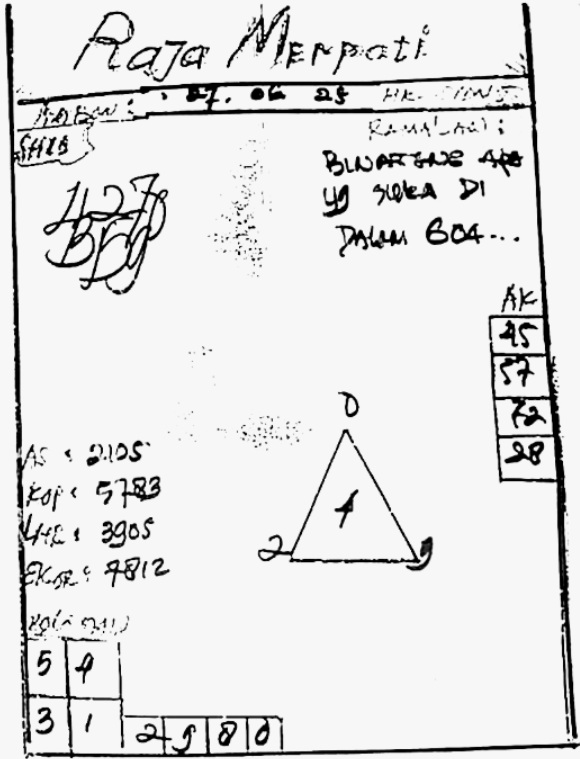 Raja Merpati
: 27. 06 25
RAMALAN :
BINATANG APA
yg SUKA DI
DALAM GOA...
4278
B59
AK
45
57
72
28
0
4
2 9
AS : 2105
KOP : 5783
3905
EKOR : 4812
5 4
3 1
2 9 8 0